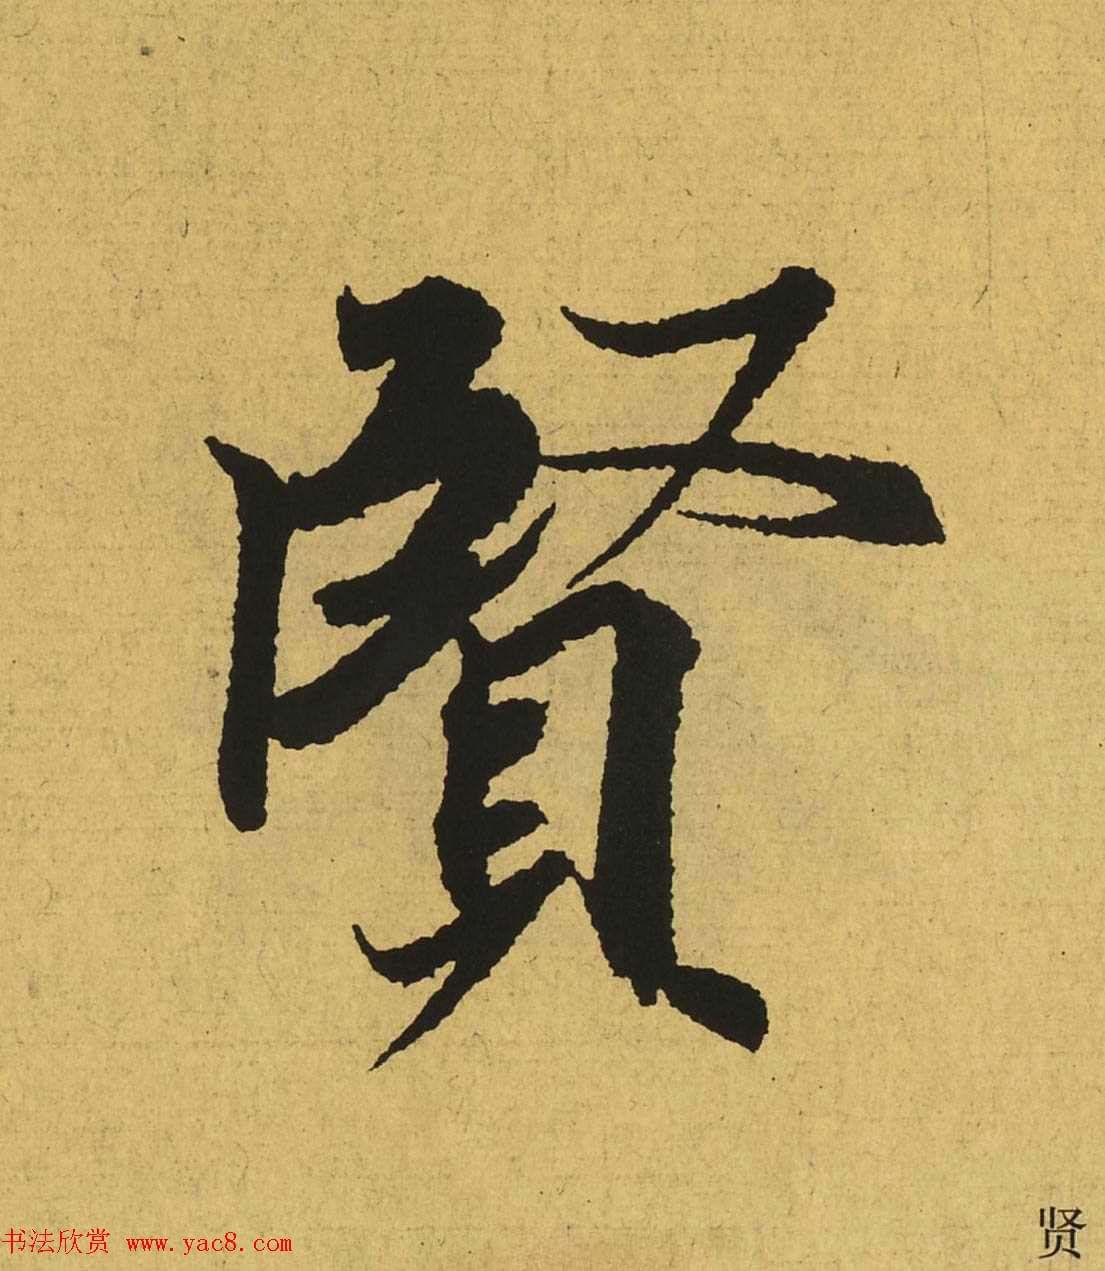 賢
贤
书法欣赏 www.yac8.com